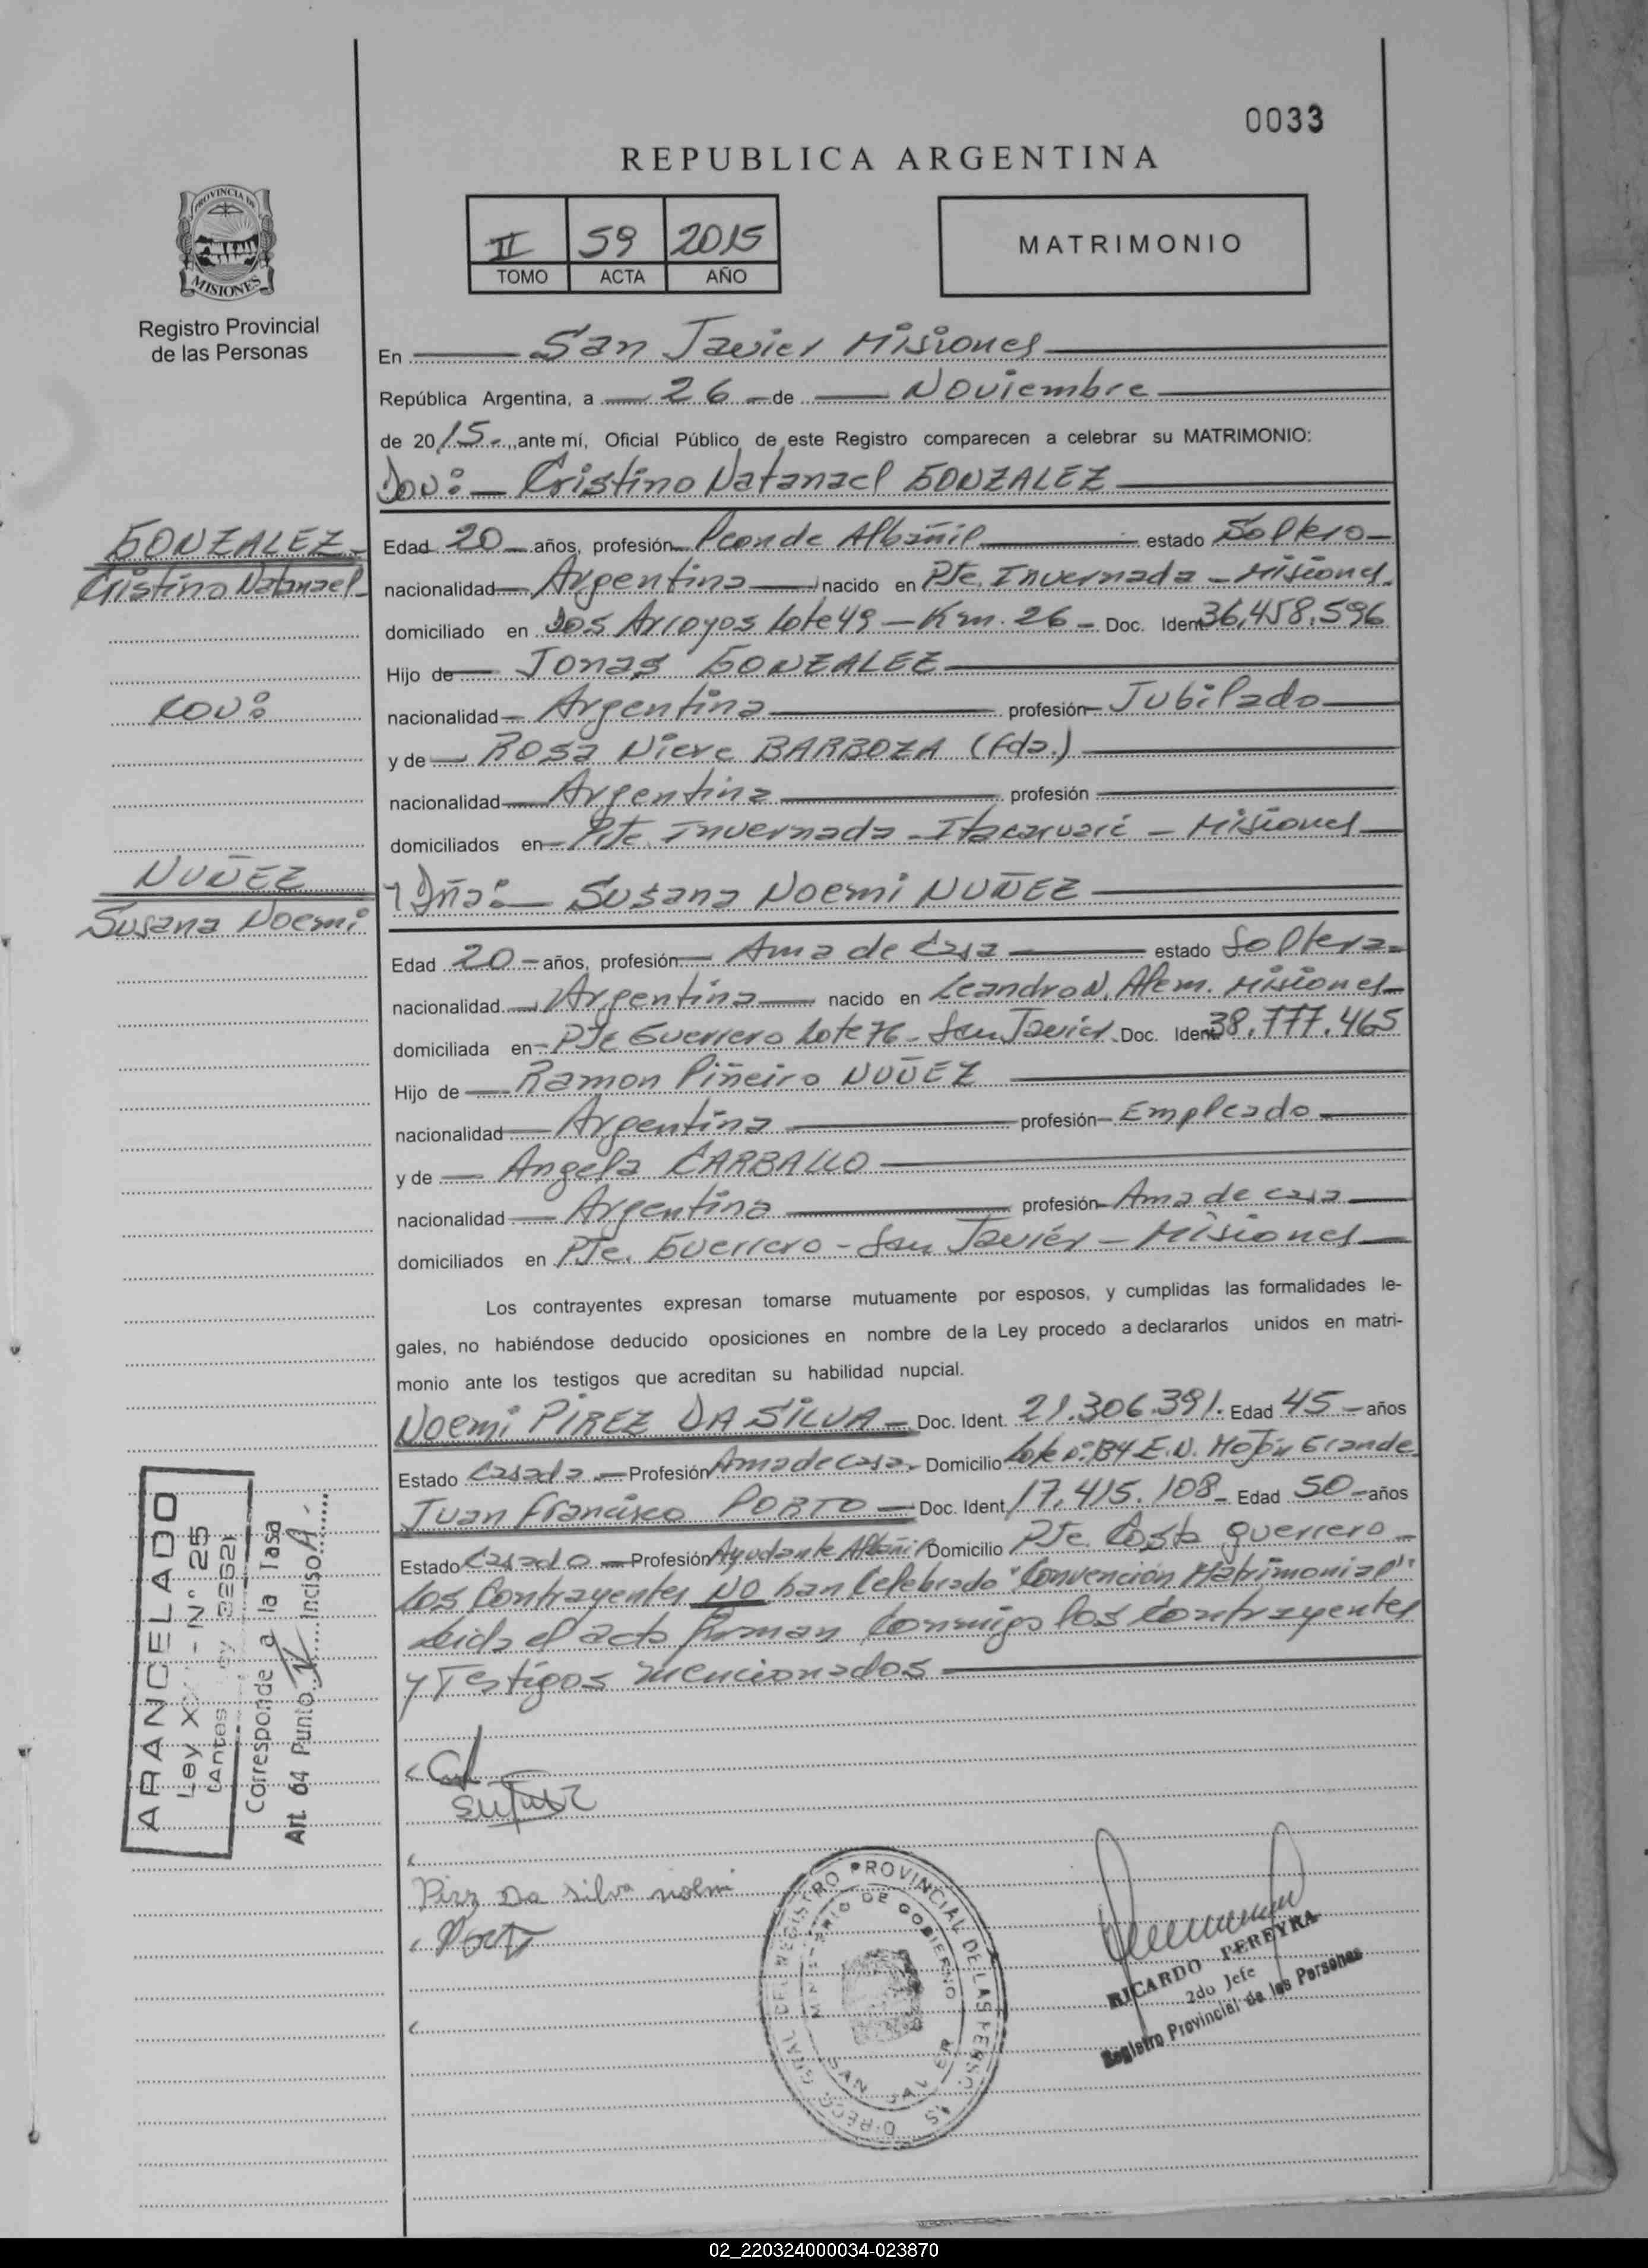 0033
REPUBLICA ARGENTINA
II 59 2015
TOMO ACTA AÑO
MATRIMONIO
PROVINCIA DE
MISIONES
Registro Provincial
de las Personas
En San Javier Misiones
República Argentina, a 26 de Noviembre
de 2015.- ante mí, Oficial Público de este Registro comparecen a celebrar su MATRIMONIO:
Don: Cristino Natanael GONZALEZ
GONZALEZ
Cristino Natanael
Edad 20 años, profesión Peon de Albañil estado Soltero
nacionalidad Argentina nacido en Pje. Invernada - Misiones
domiciliado en Dos Arroyos Lote 49 - Km. 26 - Doc. Ident 36,458,596
Hijo de Jonas GONZALEZ
con:
nacionalidad Argentina profesión Jubilado
y de Rosa Nieve BARBOZA (fda.)
nacionalidad Argentina profesión
domiciliados en Pje. Invernada - Itacaruaré - Misiones
NUÑEZ
Susana Noemi
y Dña: Susana Noemi NUÑEZ
Edad 20 años, profesión Ama de Casa estado Soltera
nacionalidad Argentina nacido en Leandro N. Alem. Misiones
domiciliada en Pje Guerrero Lote 76 - San Javier Doc. Ident 38.777.465
Hijo de Ramon Piñeiro NUÑEZ
nacionalidad Argentina profesión Empleado
y de Angela CARBALLO
nacionalidad Argentina profesión Ama de casa
domiciliados en Pje. Guerrero - San Javiér - Misiones
Los contrayentes expresan tomarse mutuamente por esposos, y cumplidas las formalidades le-
gales, no habiéndose deducido oposiciones en nombre de la Ley procedo a declararlos unidos en matri-
monio ante los testigos que acreditan su habilidad nupcial.
Noemi PIREZ DA SILVA Doc. Ident. 21.306.391. Edad 45 años
Estado Casada Profesión Ama de casa Domicilio Lote Nº: 84 E.N. Mojón Grande
Juan Francisco PORTO Doc. Ident 17.415.108 Edad 50 años
Estado Casado Profesión Ayudante Albañil Domicilio Pje. Costa guerrero
Los Contrayentes NO han Celebrado "Convención Matrimonial"
Leida el acta firman Conmigo los Contrayentes
y Testigos mencionados
ARANCELADO
Ley - Nº 25
(Antes Ley 2262)
Corresponde a la Tasa
Art. 64 Punto IV Inciso A
Pirz Da silva noemi
DIRECC. GRAL. DEL REGISTRO PROVINCIAL DE LAS PERSONAS
MINISTERIO DE GOBIERNO
SAN JAVIER
RICARDO PEREYRA
2do Jefe
Registro Provincial de las Personas
02_220324000034-023870